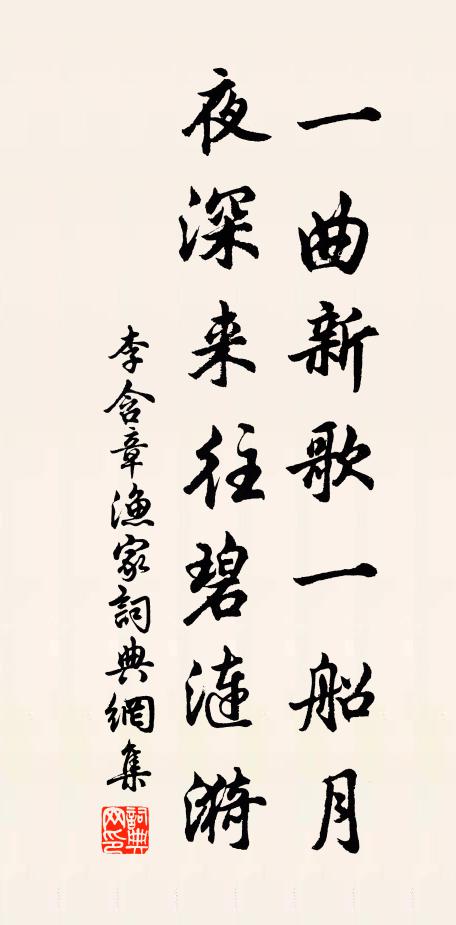 一曲新歌一船月
夜深来往碧漣漪
李含章漁家詞典網集
詞典网印